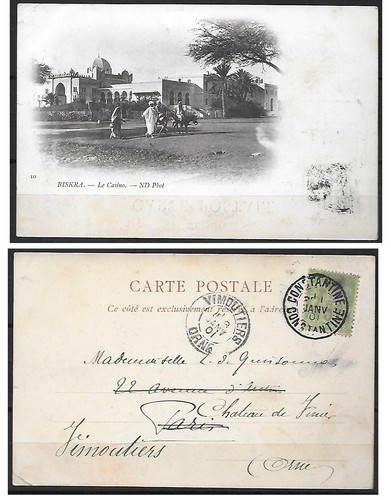 10
BISKRA. — Le Casino. — ND Phot
CARTE POSTALE
Ce côté est exclusivement réservé à l'adresse
VIMOUTIERS
JANV
01
ORNE
CONSTANTINE
JANV
01
CONSTANTINE
Mademoiselle L. de
22 avenue
Paris
Chateau de
Vimoutiers
(Orne)